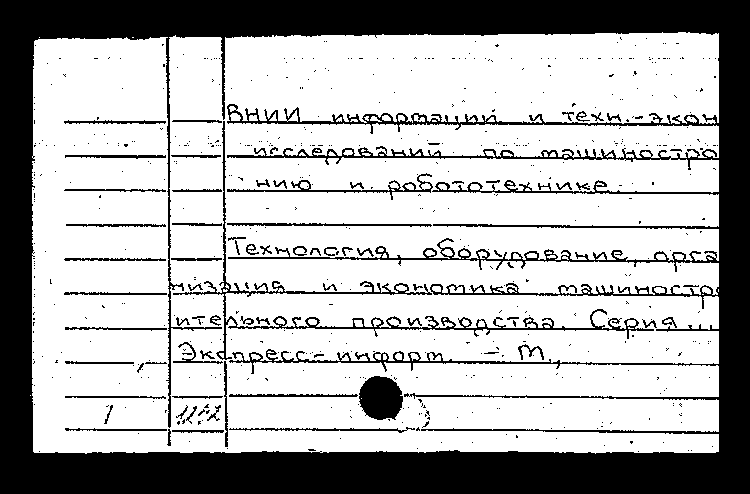 ВНИИ информации и техн.-экон
исследований по машиностро
нию и робототехнике.
Технология, оборудование, орга
низация и экономика машиностро
ительного производства. Серия...
Экспресс-информ. – М.,
1